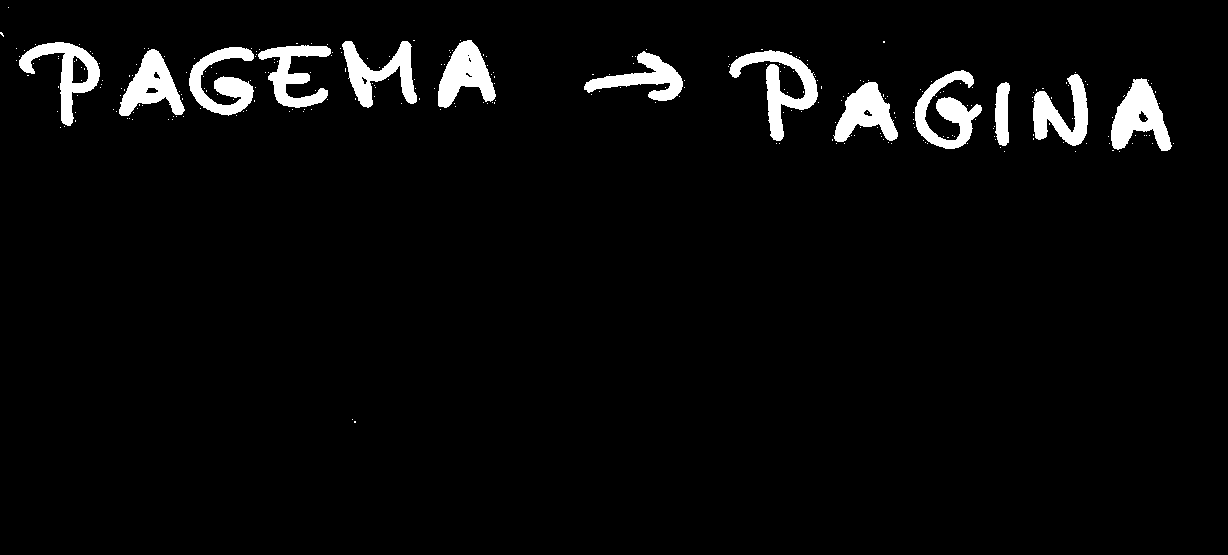 PAGEMA → PAGINA